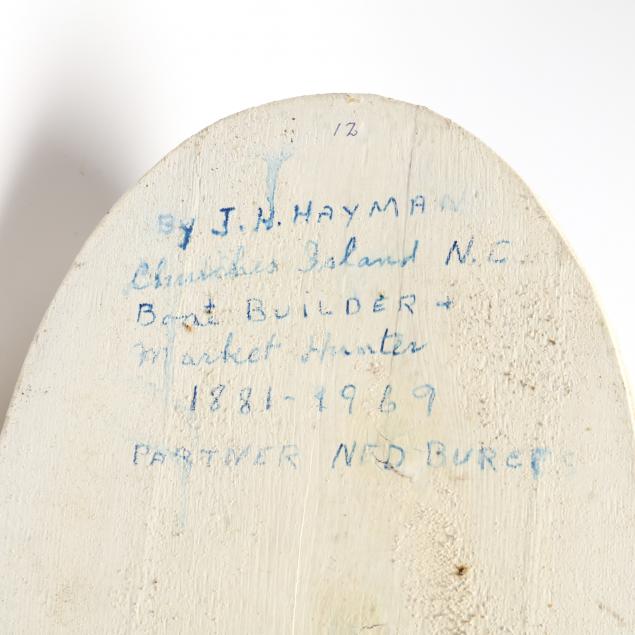 12
By J.H. HAYMAN
Churches Island N.C.
Boat BUILDER +
Market Hunter
1881-1969
PARTNER NED BURGESS